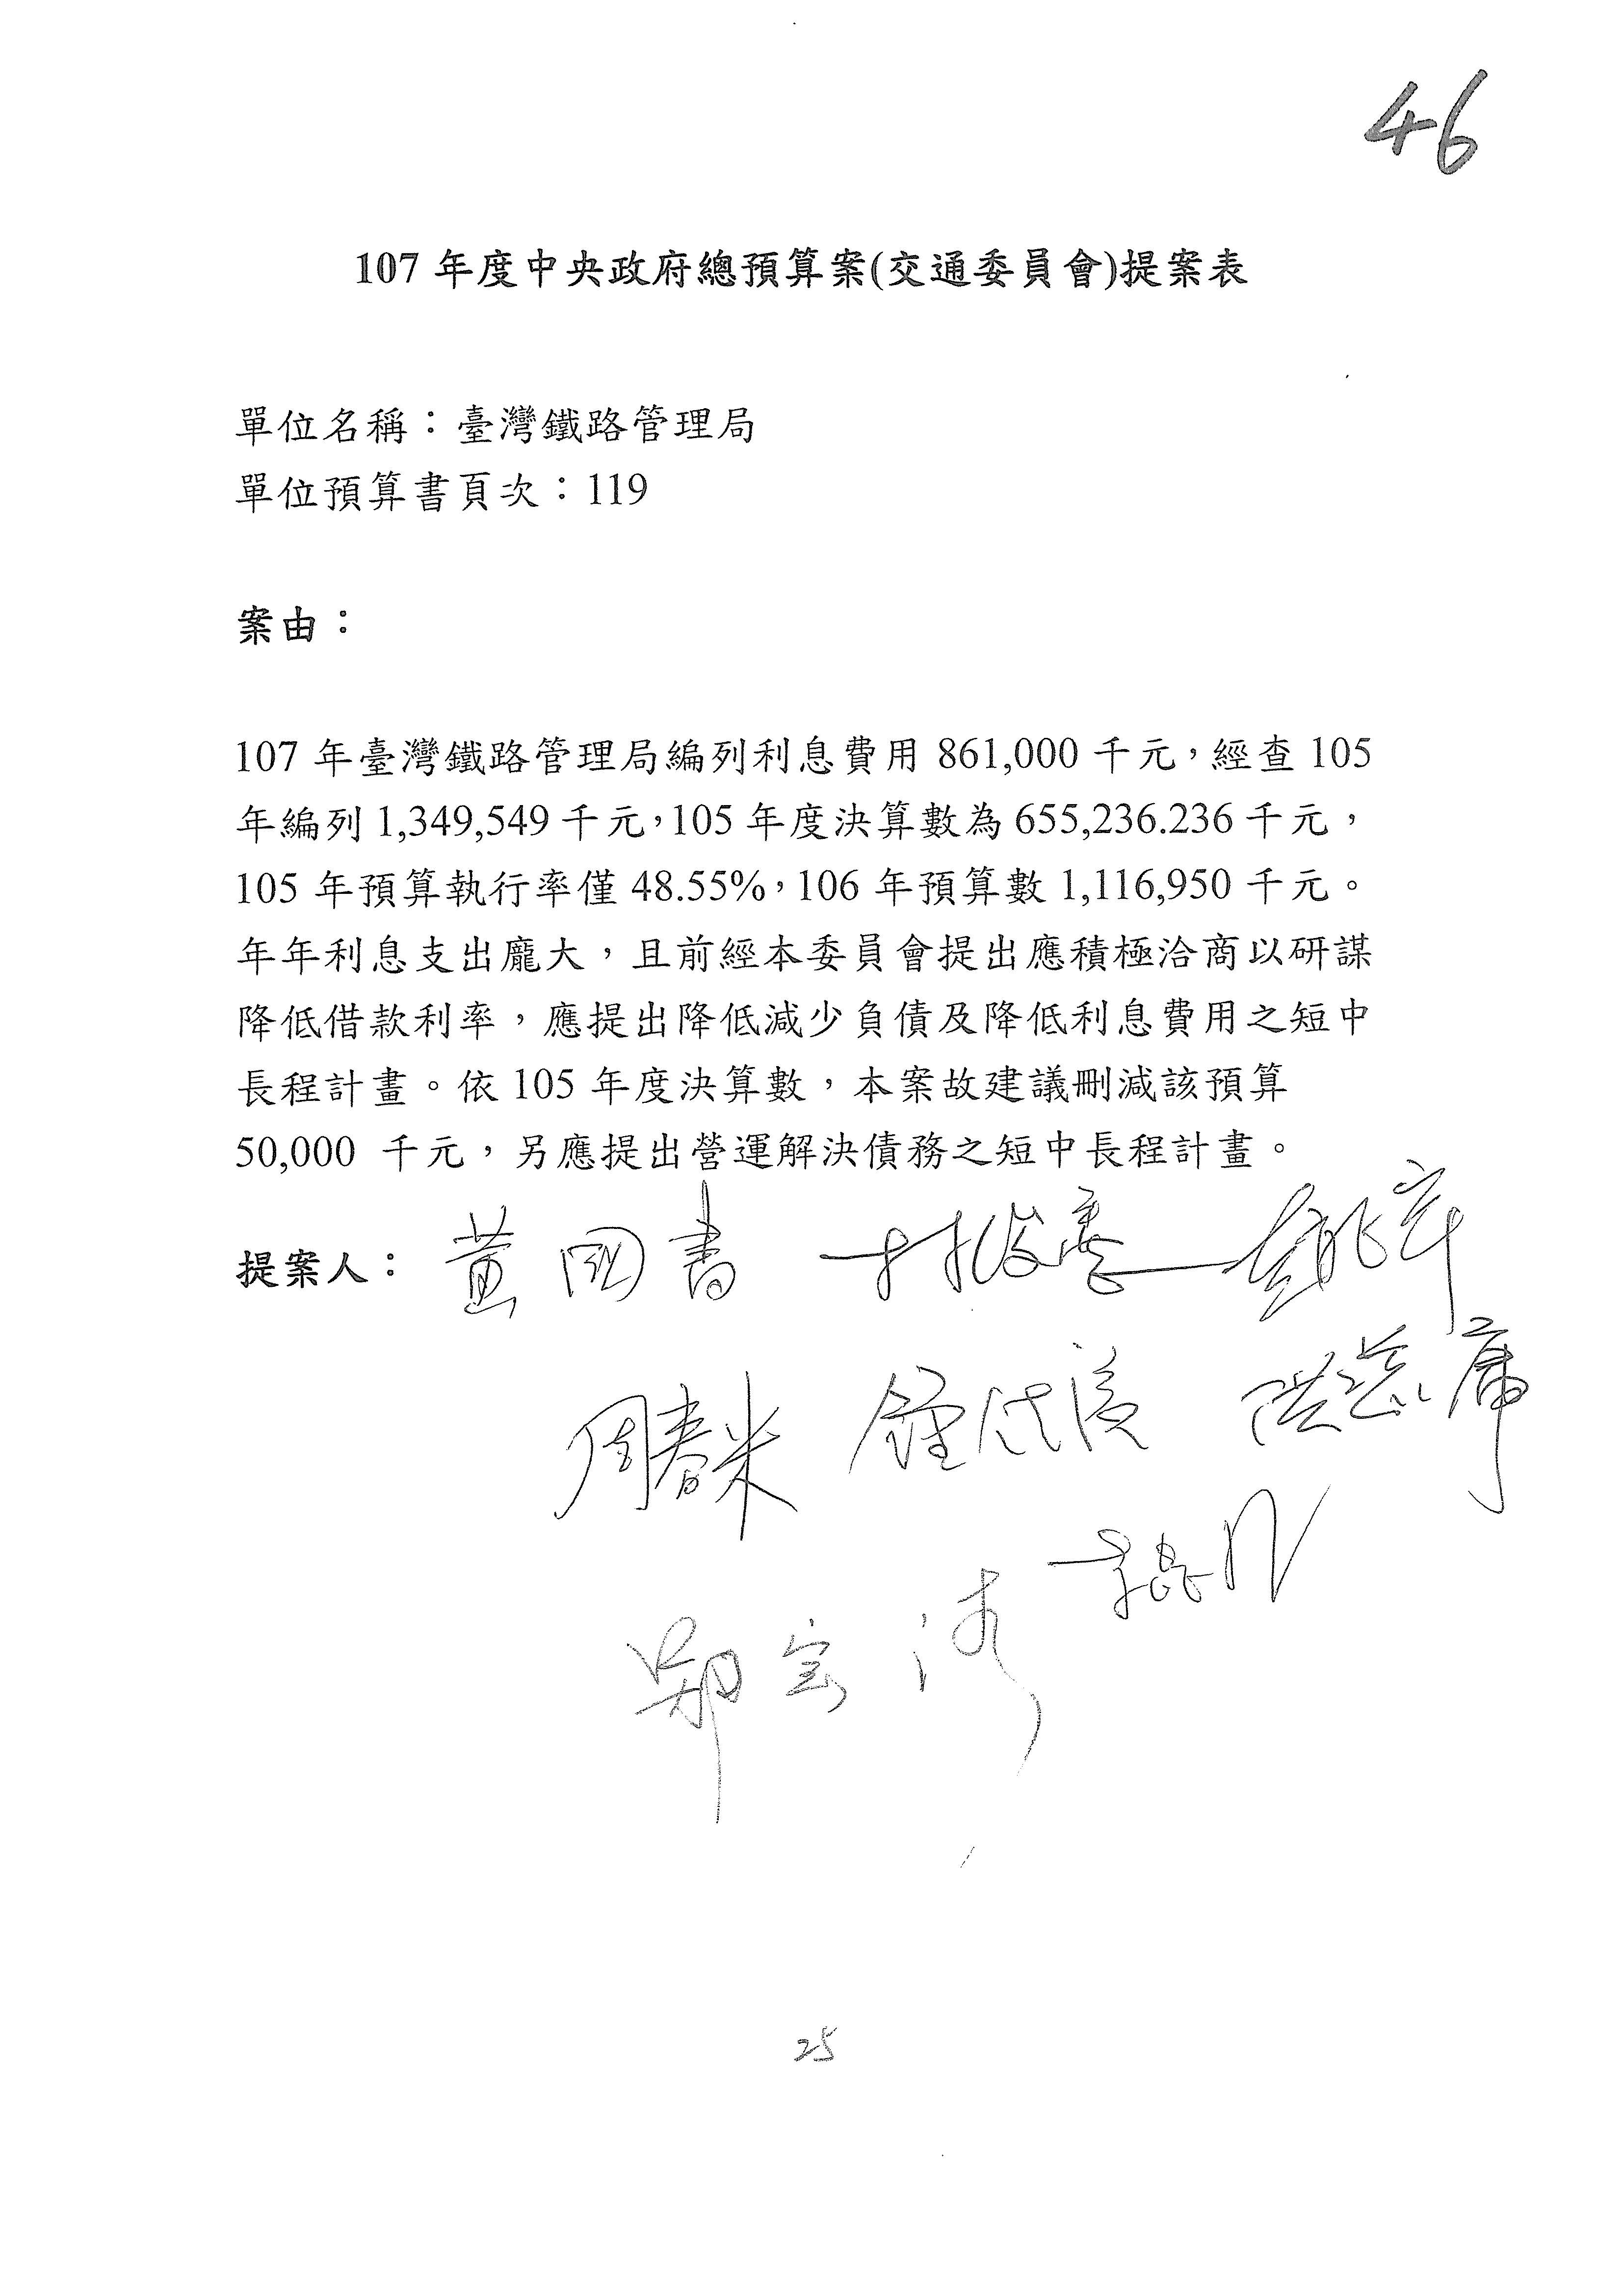 46
107 年度中央政府總預算案(交通委員會)提案表
單位名稱：臺灣鐵路管理局
單位預算書頁次：119
案由：
107 年臺灣鐵路管理局編列利息費用 861,000 千元，經查 105
年編列 1,349,549 千元，105 年度決算數為 655,236.236 千元，
105 年預算執行率僅 48.55%，106 年預算數 1,116,950 千元。
年年利息支出龐大，且前經本委員會提出應積極洽商以研謀
降低借款利率，應提出降低減少負債及降低利息費用之短中
長程計畫。依 105 年度決算數，本案故建議刪減該預算
50,000 千元，另應提出營運解決債務之短中長程計畫。
提案人： 黃國書 林俊憲
周春米 鍾佳濱 洪慈庸
鄭寶清
25